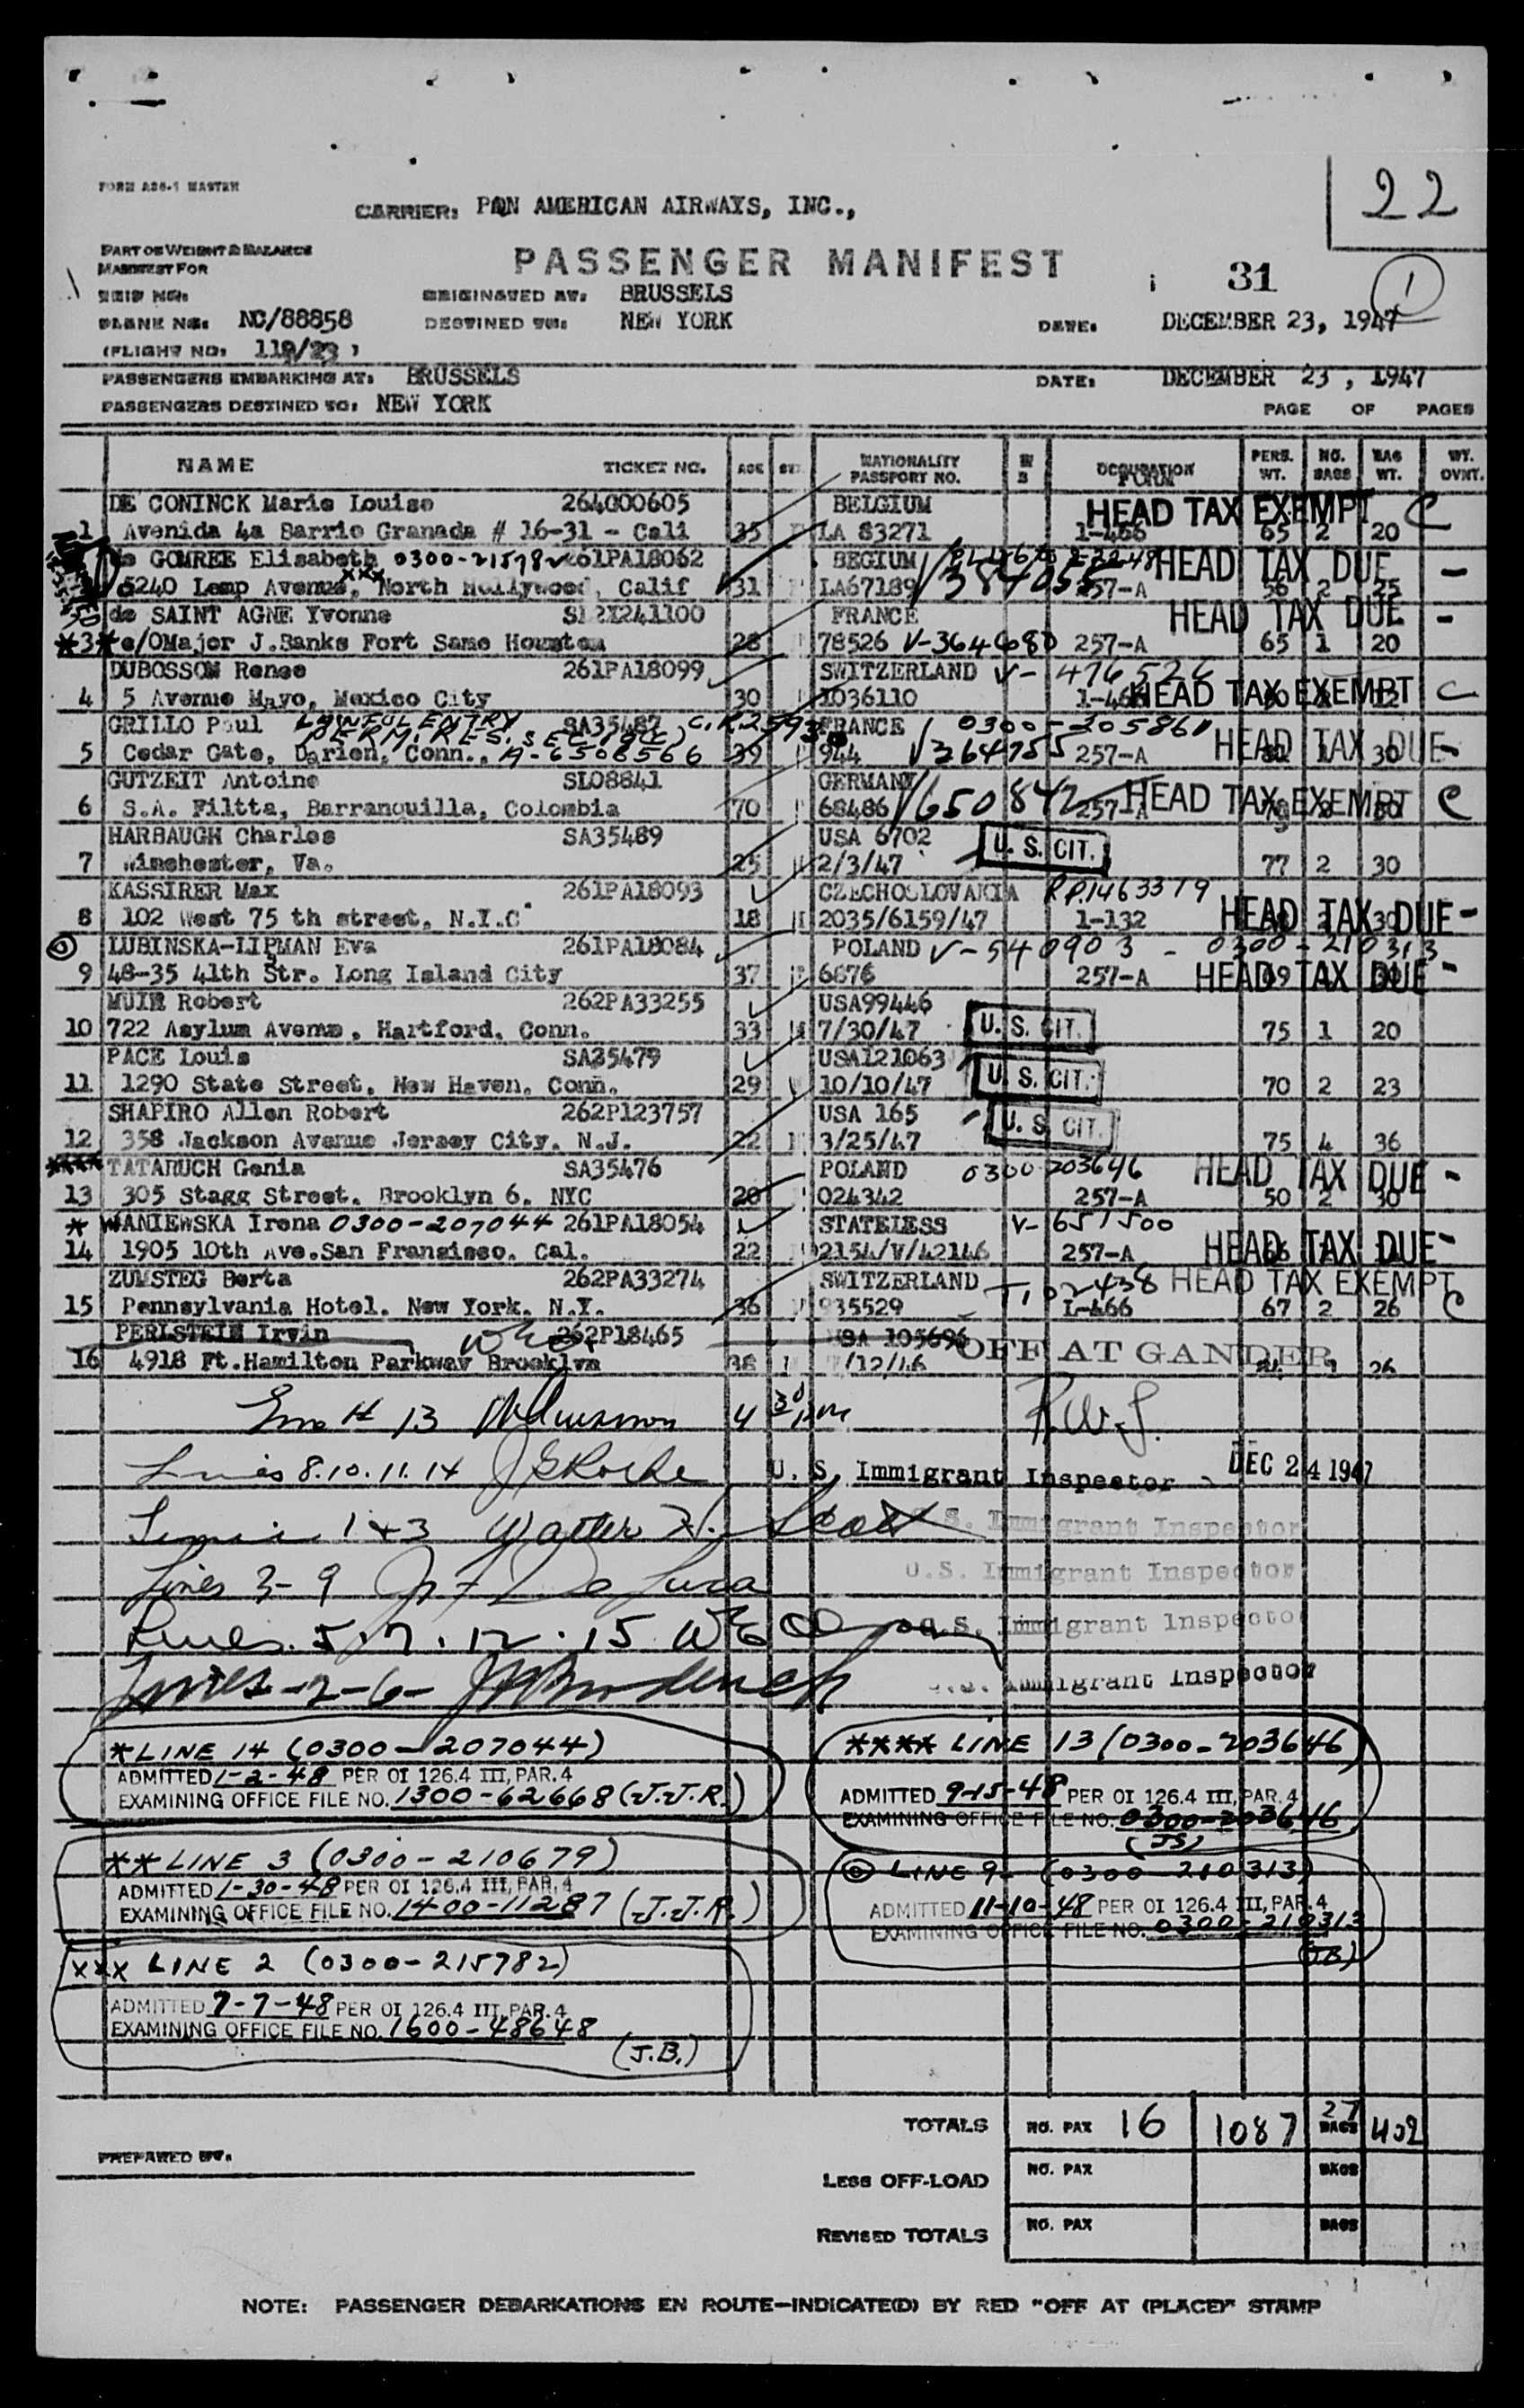 FORM A26-1 MASTER
22
CARRIER: PAN AMERICAN AIRWAYS, INC.,
PART OF WEIGHT & BALANCE
MANIFEST FOR
PASSENGER MANIFEST
31
1
SHIP NO:
ORIGINATED AT: BRUSSELS
PLANE NO: NC/88858
DESTINED TO: NEW YORK
DATE: DECEMBER 23, 1947
(FLIGHT NO: 119/23 )
PASSENGERS EMBARKING AT: BRUSSELS
DATE: DECEMBER 23, 1947
PASSENGERS DESTINED TO: NEW YORK
PAGE OF PAGES
NAME TICKET NO. AGE NATIONALITY PASSPORT NO. OCCUPATION PERS. WT. NO. BAGS BAG WT. WT. OVNT.
DE CONINCK Marie Louise 264000605 BELGIUM HEAD TAX EXEMPT C
1 Avenida 4a Barrio Granada # 16-31 - Cali 35 LA 83271 1-466 65 2 20
de GOMREE Elisabeth 0300-215782 261PA18062 BEGIUM HEAD TAX DUE -
5240 Lemp Avenue, xxx North Hollywood, Calif 31 LA67189 V384055 257-A 56 2 25
de SAINT AGNE Yvonne FRANCE HEAD TAX DUE -
*3* c/OMajor J.Banks Fort Same Houston 28 78526 V-3644680 257-A 65 1 20
DUBOSSON Renee 261PA18099 SWITZERLAND V- 476526
4 5 Avenue Mayo, Mexico City 30 1036110 1-466 HEAD TAX EXEMPT C
GRILLO Paul LAWFUL ENTRY PERM. RES. SA35487 FRANCE 0300-205861
5 Cedar Gate, Darien, Conn., A-6508566 39 944 V364755 257-A HEAD TAX DUE - 30
GUTZEIT Antoine SL08841 GERMANY
6 S.A. Filtta, Barranquilla, Colombia 70 68486 V650842 257-A HEAD TAX EXEMPT C
HARBAUGH Charles SA35489 USA 6702 U.S. CIT.
7 Winchester, Va. 25 2/3/47 77 2 30
KASSIRER Max 261PA18093 CZECHOSLOVAKIA R.P.1463319
8 102 West 75 th street, N.Y.C 18 2035/6159/47 1-132 HEAD TAX DUE - 30
LUBINSKA-LIPMAN Eva 261PA18084 POLAND V-540903 - 0300-210313
9 48-35 41th Str. Long Island City 37 6876 257-A HEAD TAX DUE -
MUIR Robert 262PA33255 USA99446
10 722 Asylum Avenue, Hartford, Conn. 33 M 7/30/47 U.S. CIT. 75 1 20
PACE Louis SA35479 USA121063
11 1290 State Street, New Haven, Conn. 29 10/10/47 U.S. CIT. 70 2 23
SHAPIRO Allen Robert 262P123757 USA 165 U.S. CIT.
12 358 Jackson Avenue Jersey City, N.J. 22 3/25/47 75 4 36
**** TATARUCH Genia SA35476 POLAND 0300-203646 HEAD TAX DUE -
13 305 Stagg Street, Brooklyn 6, NYC 20 024342 257-A 50 2 30
* WANIEWSKA Irena 0300-207044 261PA18054 STATELESS V-651500
14 1905 10th Ave.San Fransisco, Cal. 22 2154/V/42146 257-A HEAD TAX DUE -
ZUMSTEG Berta 262PA33274 SWITZERLAND HEAD TAX EXEMPT
15 Pennsylvania Hotel, New York, N.Y. 36 935529 I-466 67 2 26 C
PERLSTEIN Irvin 262P18465 USA 105696 OFF AT GANDER
16 4918 Ft.Hamilton Parkway Brooklyn 38 7/12/46 26
Line # 13 4 30 pm R.W.J.
Lines 8.10.11.14 J G Roche U. S. Immigrant Inspector DEC 24 1947
1 & 3 Walter H. Scott U.S. Immigrant Inspector
Lines 3-9 U.S. Immigrant Inspector
Lines 5.7.12.15 U.S. Immigrant Inspector
Lines -2-6- U.S. Immigrant Inspector
*LINE 14 (0300-207044)
ADMITTED 1-2-48 PER OI 126.4 III, PAR. 4
EXAMINING OFFICE FILE NO. 1300-62668 (J.J.R.)
**** LINE 13 (0300-203646)
ADMITTED 9-15-48 PER OI 126.4 III, PAR. 4
EXAMINING OFFICE FILE NO. 0300-203646
(JS)
** LINE 3 (0300-210679)
ADMITTED 1-30-48 PER OI 126.4 III, PAR. 4
EXAMINING OFFICE FILE NO. 1400-11287 (J.J.R.)
LINE 9- (0300-210313)
ADMITTED 11-10-48 PER OI 126.4 III, PAR. 4
EXAMINING OFFICE FILE NO. 0300-210313
(J.B.)
xxx LINE 2 (0300-215782)
ADMITTED 7-7-48 PER OI 126.4 III, PAR. 4
EXAMINING OFFICE FILE NO. 1600-48648
(J.B.)
TOTALS NO. PAX 16 1087 27 BAGS 402
PREPARED BY.
LESS OFF-LOAD NO. PAX BAGS
REVISED TOTALS NO. PAX BAGS
NOTE: PASSENGER DEBARKATIONS EN ROUTE—INDICATE(D) BY RED "OFF AT (PLACE)" STAMP